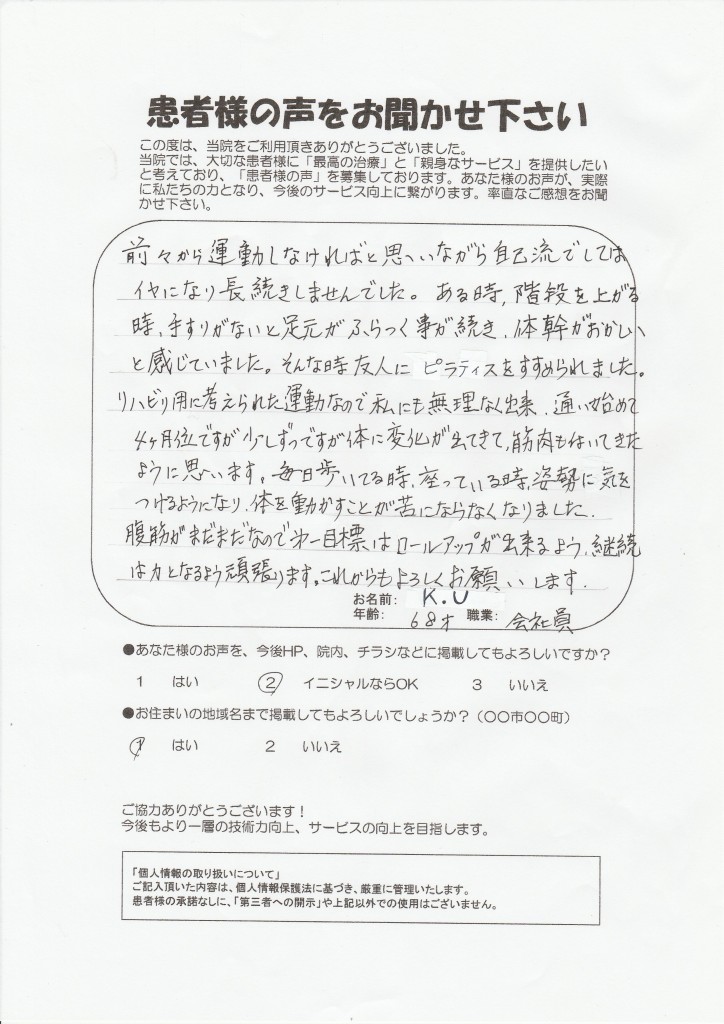 患者様の声をお聞かせ下さい
この度は、当院をご利用頂きありがとうございました。
当院では、大切な患者様に「最高の治療」と「親身なサービス」を提供したい
と考えており、「患者様の声」を募集しております。あなた様のお声が、実際
に私たちの力となり、今後のサービス向上に繋がります。率直なご感想をお聞
かせ下さい。
前々から運動しなければと思いながら自己流でしては
イヤになり長続きしませんでした。ある時、階段を上がる
時、手すりがないと足元がふらつく事が続き、体幹がおかしい
と感じていました。そんな時友人に ピラティスをすすめられました。
リハビリ用に考えられた運動なので私にも無理なく出来、通い始めて
4ヶ月位ですが少しずつですが体に変化が出てきて、筋肉も付いてきた
ように思います。毎日歩いてる時、座っている時、姿勢に気を
つけるようになり、体を動かすことが苦にならなくなりました。
腹筋がまだまだなので第一目標はロールアップが出来るよう、継続
は力となるよう頑張ります。これからもよろしくお願いします。
お名前: K.U
年齢: 68才 職業: 会社員
●あなた様のお声を、今後HP、院内、チラシなどに掲載してもよろしいですか?
1 はい 2 イニシャルならOK 3 いいえ
●お住まいの地域名まで掲載してもよろしいでしょうか?(〇〇市〇〇町)
1 はい 2 いいえ
ご協力ありがとうございます!
今後もより一層の技術力向上、サービスの向上を目指します。
「個人情報の取り扱いについて」
ご記入頂いた内容は、個人情報保護法に基づき、厳重に管理いたします。
患者様の承諾なしに、「第三者への開示」や上記以外での使用はございません。